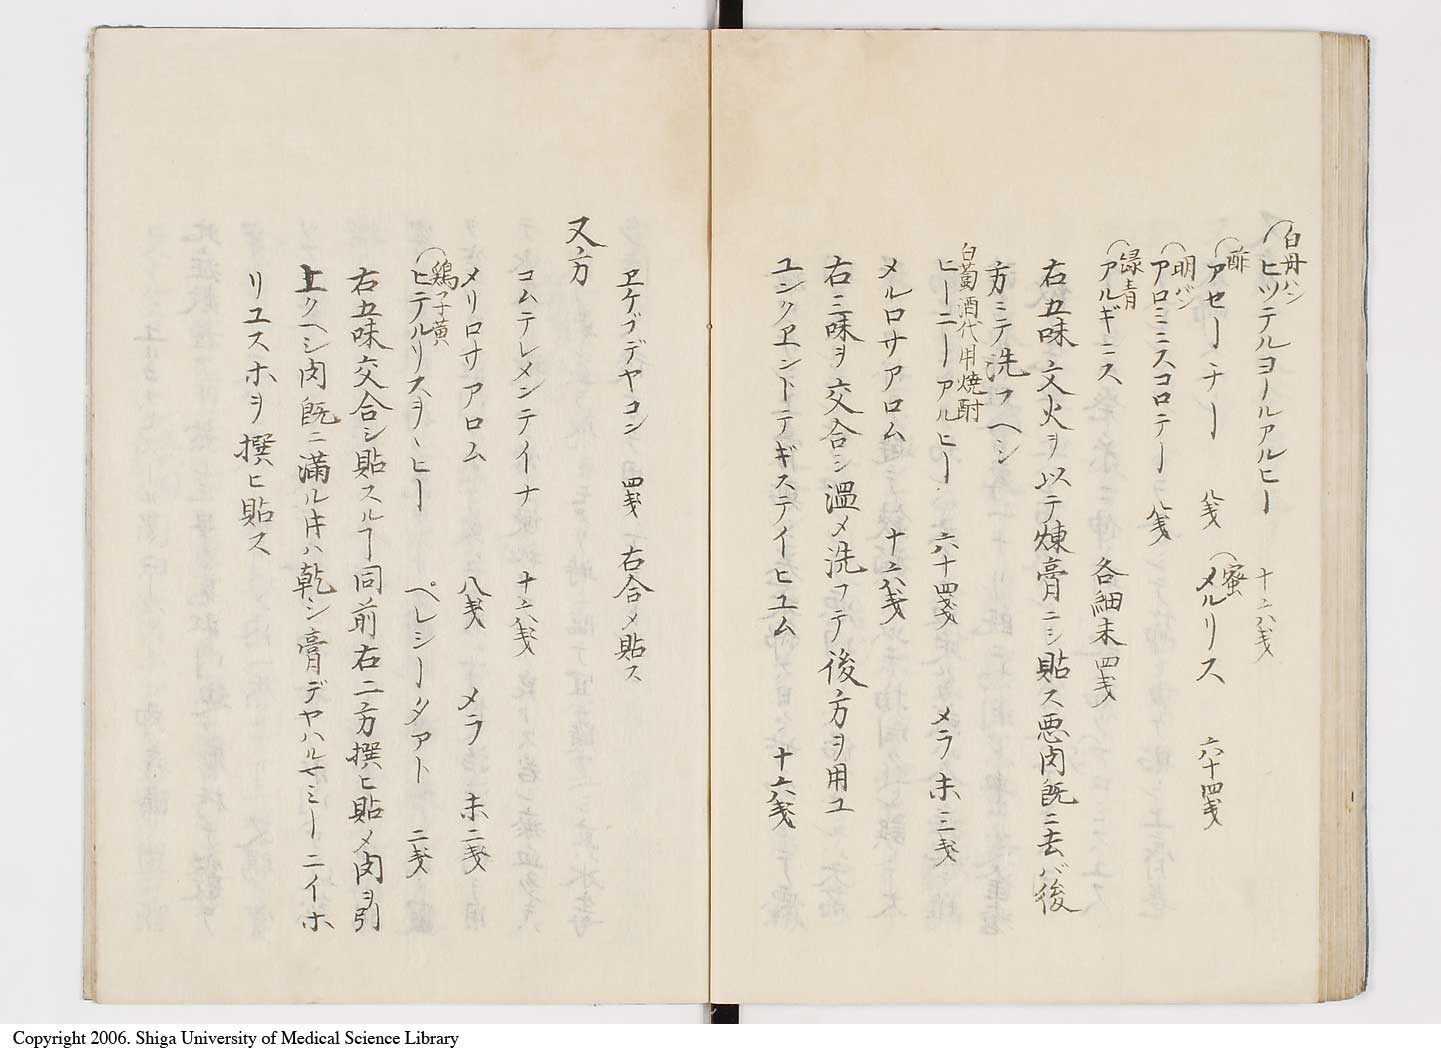 白丹バン
ヒツテルヨールアルヒー 十六戔
酢 蜜
アセーチー 八戔 メルリス 六十四戔
明バン
アロミニスコロテー 八戔
緑青
アルギニス 各細末四戔
右五味文火ヲ以テ煉膏ニシ貼ス悪肉既ニ去バ後
方ミテ洗フヘシ
白萄酒代用焼酎
ヒーニーアルヒー 六十四戔 メラ末三戔
メルロサアロム 十六戔
右三味ヲ交合シ温メ洗フテ後方ヲ用ユ
ユンクヱンドテギステイヒユム 十六戔
ヱケブデヤコン 四戔 右合メ貼ス
又方
コムテレメンテイナ 十六戔
メリロサアロム 八戔 メラ末二戔
鶏子黄
ヒテルリスヲヽヒー ペレシータアト 二戔
右五味交合シ貼スルヿ同前右二方撰ヒ貼メ肉ヲ引
上クヘシ肉既ニ満ル片ハ乾シ膏デヤハルマミーニイホ
リユスホヲ撰ヒ貼ス
Copyright 2006. Shiga University of Medical Science Library